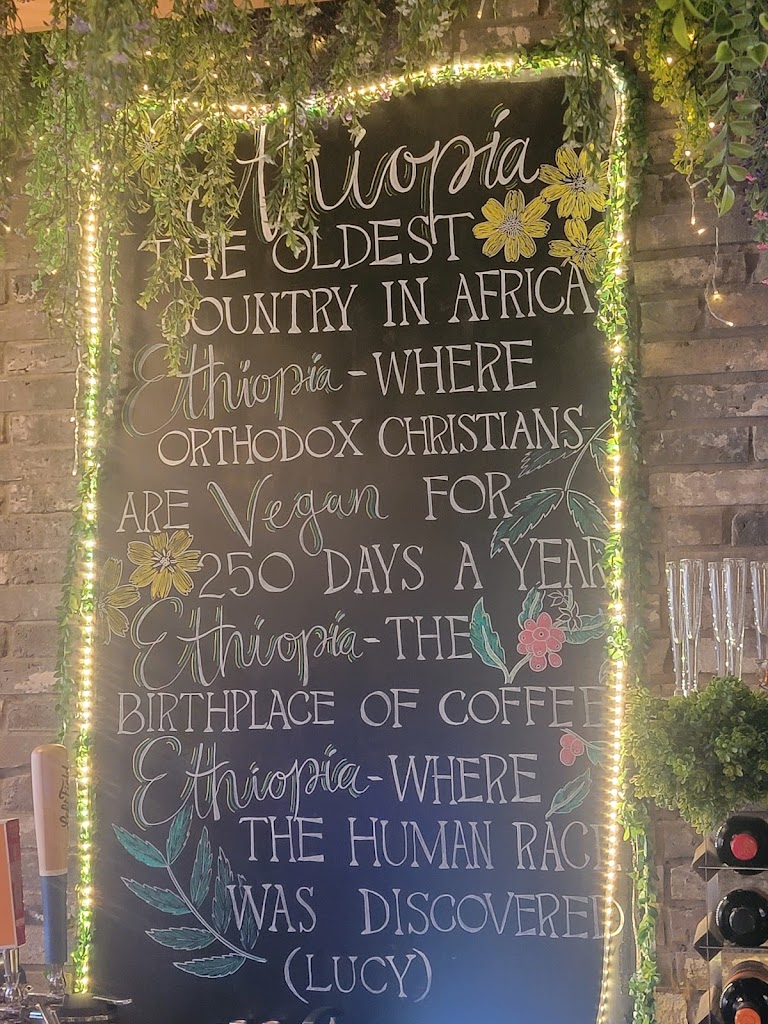 Ethiopia
THE OLDEST
COUNTRY IN AFRICA
Ethiopia - WHERE
ORTHODOX CHRISTIANS
ARE Vegan FOR
250 DAYS A YEAR
Ethiopia - THE
BIRTHPLACE OF COFFEE
Ethiopia - WHERE
THE HUMAN RACE
WAS DISCOVERED
(LUCY)